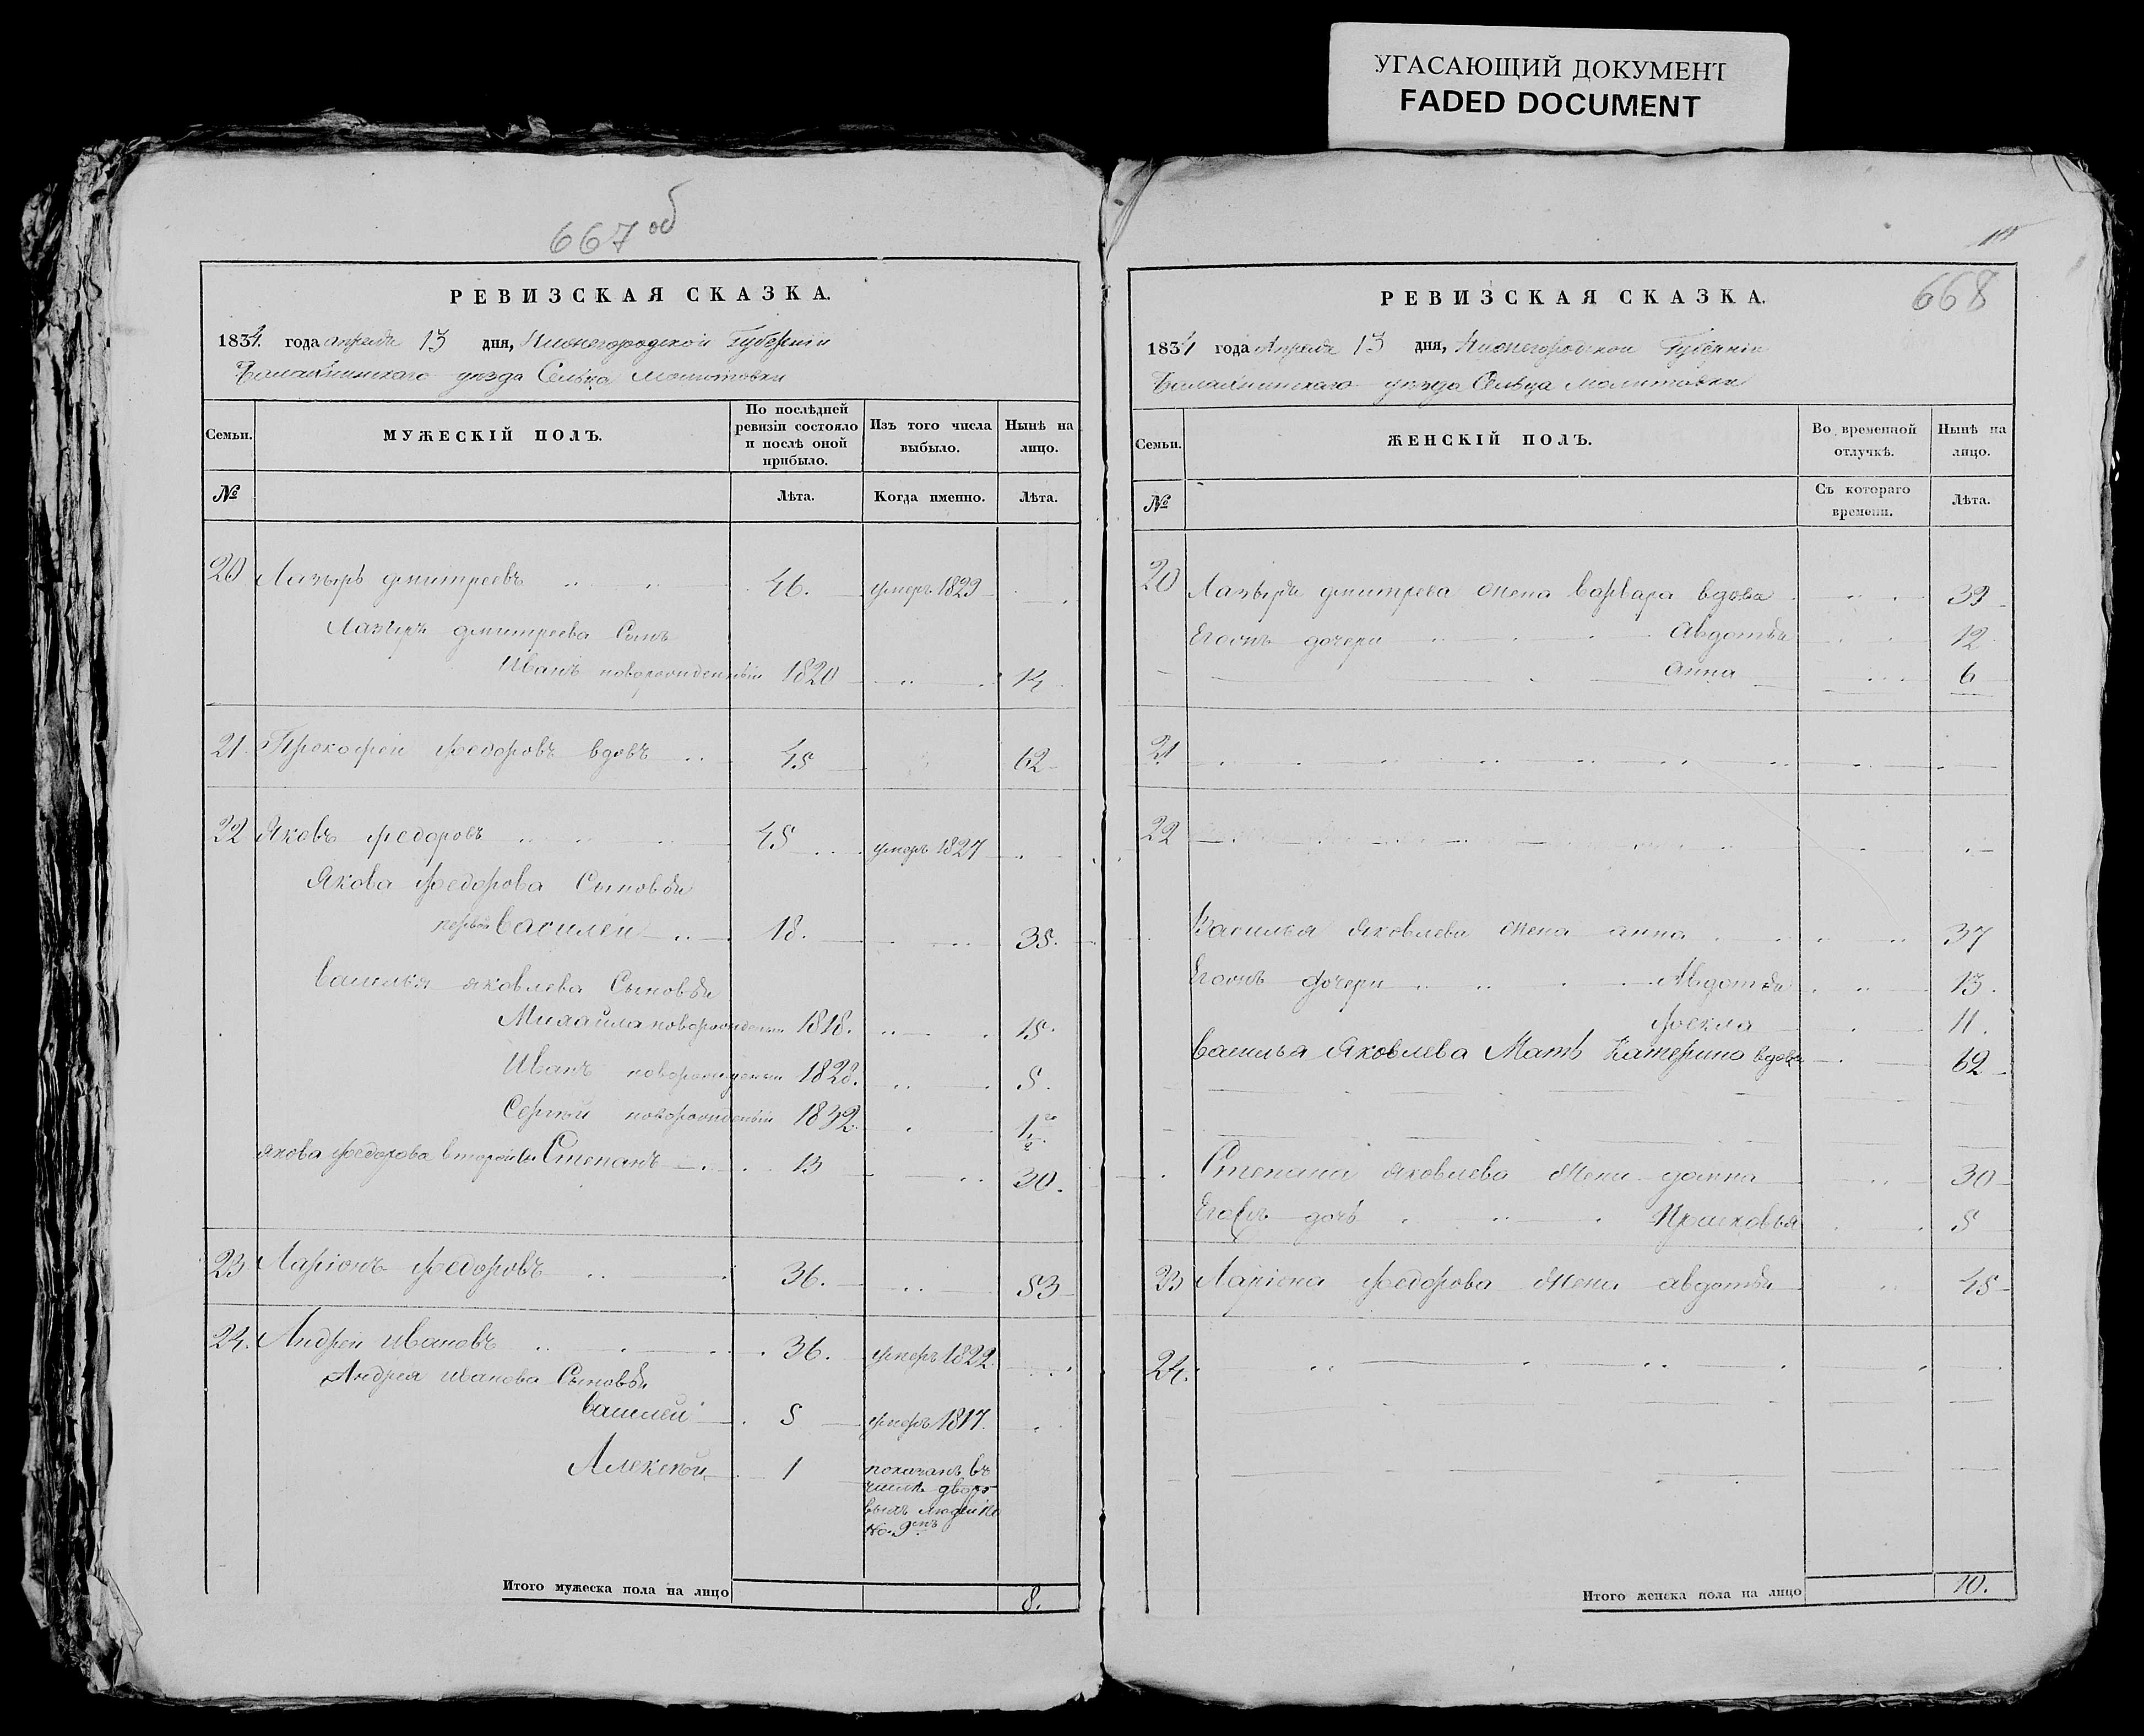 УГАСАЮЩИЙ ДОКУМЕНТ
FADED DOCUMENT
667 об
РЕВИЗСКАЯ СКАЗКА.
1834 года апреля 13 дня, Нижегородской Губернии
Балахнинскаго уезда Сельца Молитовки
Семьи.
МУЖЕСКІЙ ПОЛЪ.
По послѣдней ревизіи состояло и послѣ оной прибыло.
Изъ того числа выбыло.
Нынѣ на лицо.
№
Лѣта.
Когда именно.
Лѣта.
20 Лазырь дмитреевъ 46. умеръ 1829
Лазыря дмитреева Сынъ
Иванъ новорожденный 1820 14
21. Прокофеи Федоровъ вдовъ 45 62
22 Яковъ Федоровъ 45 умеръ 1827
Якова Федорова Сыновья
первой Василеи 18. 35.
Василья яковлева Сыновья
Михайла новорожденныи 1818. 15.
Иванъ новорожденныи 1828. 5.
Сергѣй новорожденныи 1832. 1 1/2
якова Федорова второй Степанъ 13 30.
23 Ларіонъ Федоровъ 36. 53
24. Андреи Ивановъ 36. умеръ 1822.
Андрея иванова Сыновья
Василеи 5 умеръ 1817.
Алексѣй 1 показанъ въ
числѣ дворо
выхъ людей
No. 9
Итого мужеска пола на лицо 8.
668
РЕВИЗСКАЯ СКАЗКА.
1834 года Апреля 13 дня, Нижегородской Губерніи
Балахнинскаго уезда Сельца Молитовки
Семьи.
ЖЕНСКІЙ ПОЛЪ.
Во временной отлучкѣ.
Нынѣ на лицо.
№
Съ котораго времени.
Лѣта.
20 Лазыря дмитрева жена варвара вдова 39
Егожъ дочери Авдотья 12
анна 6
21
22
Василья яковлева жена анна 37
Егожъ дочери Авдотья 13.
Фекла 11.
Василья Яковлева Мать Катерина вдова 62
Степана яковлева жена домна 30
Егожъ дочь Прасковья 5
23 Ларіона Федорова жена авдотья 45
24.
Итого женска пола на лицо 10.